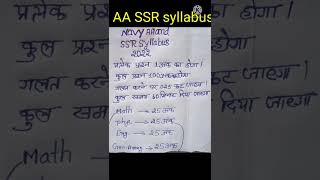 AA SSR syllabus
प्रत्येक प्रश्न 1 अंक का होगा।
कुल प्रश्न
होगा
गलत करने
कट जाएगा।
कुल समय
दिया जाएगा
Math
NAVY AA and
SSR Syllabus
2022
प्रत्येक प्रश्न 1 अंक का होगा।
कुल प्रश्न 100
गलत करने पर 0.25 कट जाएगा।
कुल समय 60 मिनट दिया जाएगा
Math → 25 अंक
phy → 25 अंक
Eng → 25 अंक
→ 25 अंक